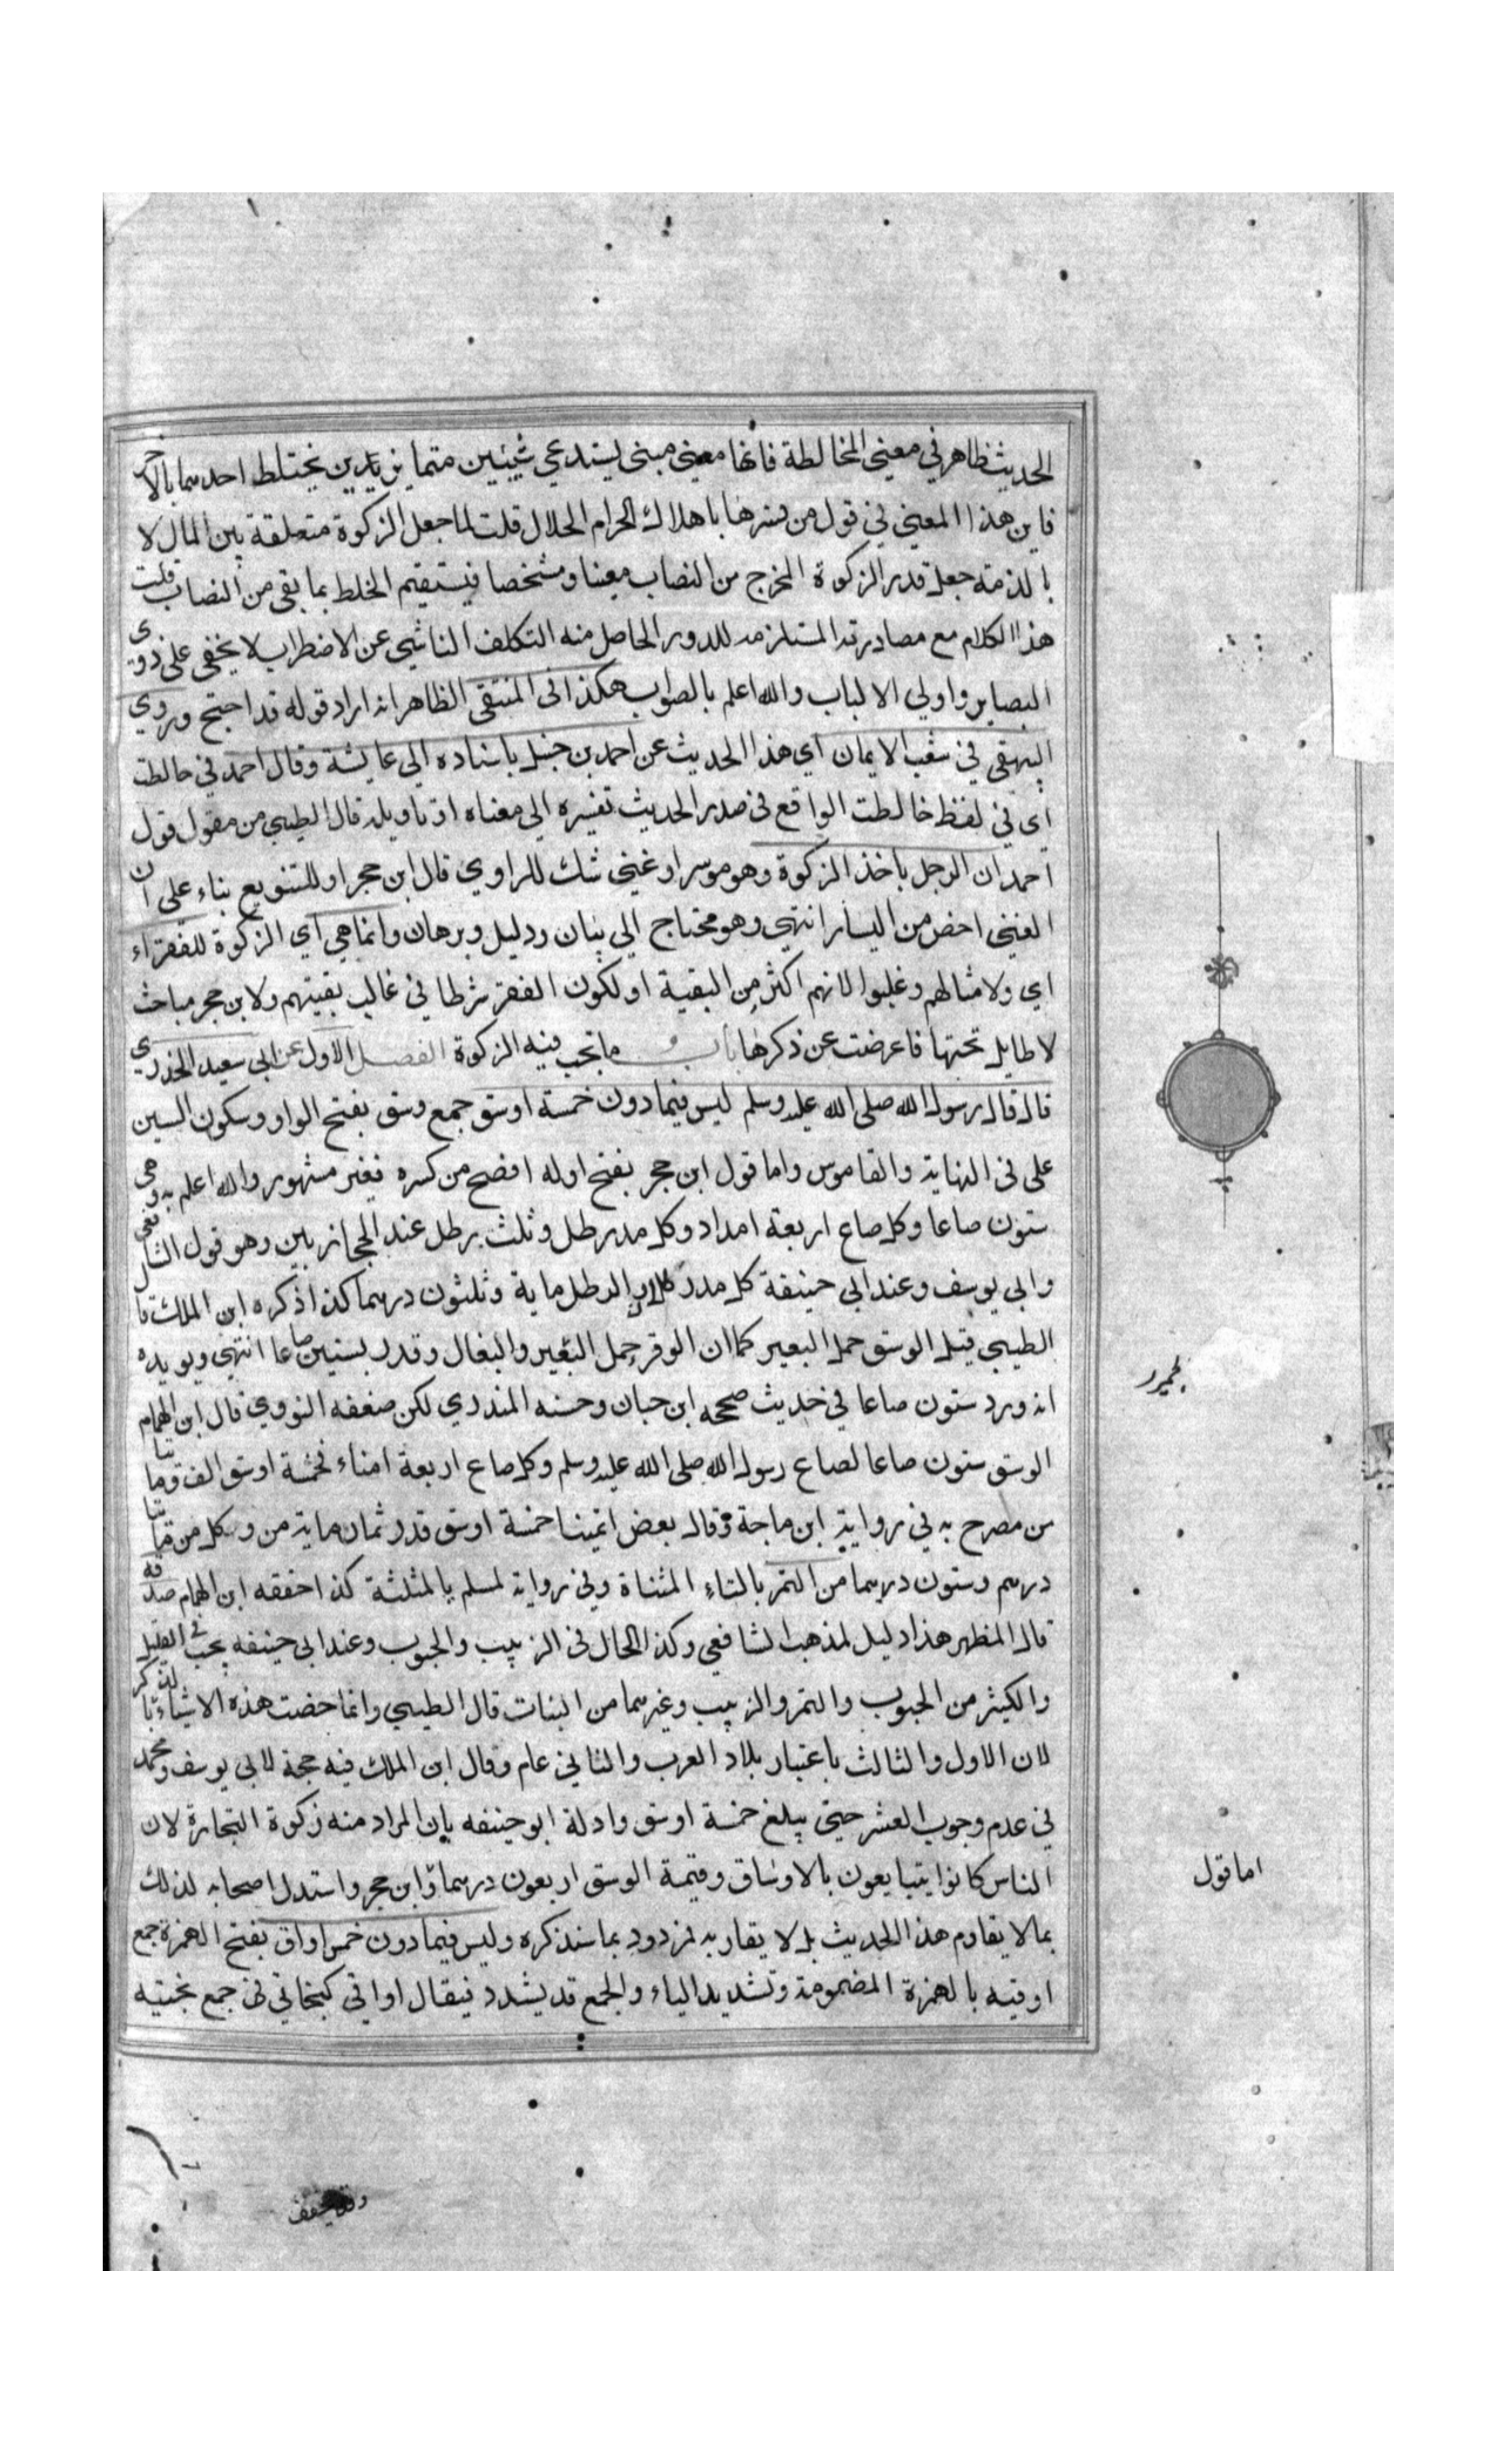 الحديث ظاهر في معنى المخالطة فانها معنى مبنى يستدعي شيئين متمايزين يختلط احدهما بالاخر
فاين هذا المعنى في قول من فسرها باهلاك الحرام الحلال قلت لما جعل الزكوة متعلقة بين المال لا
بالذمة جعل قدر الزكوة المخرج من النصاب معينا ومشخصا فيستقيم الخلط بما بقى من النصاب قلت
هذا الكلام مع مصادرته المستلزمه للدور الحاصل منه التكلف الناشي عن الاضطراب لا يخفى على ذوى
البصاير واولي الالباب والله اعلم بالصواب هكذا فى المنتقى الظاهر انه اراد قوله قد احتج وروى
البيهقي في شعب الايمان اي هذا الحديث عن احمد بن حنبل باسناده الى عايشة وقال احمد في خالطت
اي في لفظ خالطت الواقع في صدر الحديث تفسيره الى معناه او تاويله قال الطيبي من مقول قول
احمد ان الرجل ياخذ الزكوة وهو موسر او غني شك للراوي قال ابن حجر او للتنويع بناء على ان
الغنى اخص من اليسار انتهى وهو محتاج الى بيان ودليل وبرهان وانما هي اي الزكوة للفقراء
اي ولامثالهم وغلبوا لانهم اكثر من البقية او لكون الفقر شرطا في غالب بقيتهم ولابن حجر مباحث
لا طايل تحتها فاعرضت عن ذكرها باب ما تجب فيه الزكوة الفصل الاول عن ابي سعيد الخدري
قال قال رسول الله صلى الله عليه وسلم ليس فيما دون خمسة اوسق جمع وسق بفتح الواو وسكون السين
على فى النهاية والقاموس واما قول ابن حجر بفتح اوله افصح من كسره فغير مشهور والله اعلم به وهى
ستون صاعا وكل صاع اربعة امداد وكل مد رطل وثلث برطل عند الحجازيين وهو قول الشافعي
وابي يوسف وعند ابي حنيفة كل مد رطلان والرطل ماية وثلثون درهما كذا ذكره ابن الملك قال
الطيبي قيل الوسق حمل البعير كما ان الوقر حمل البغير والبغال وقدر بستين صاعا انتهى ويويده
لحمير
انه ورد ستون صاعا في حديث صححه ابن حبان وحسنه المنذري لكن ضعفه النووي قال ابن الهمام
الوسق ستون صاعا لصاع رسول الله صلى الله عليه وسلم وكل صاع اربعة امناء فخمسة اوسق الف ومايتا
من مصرح به في رواية ابن ماجة وقال بعض ائمينا خمسة اوسق قدر ثمان ماية من وكل من مايتا
درهم وستون درهما من التمر بالتاء المثناة وفي رواية لمسلم بالمثلثة كذا حققه ابن الهمام صدقه
قال المظهر هذا دليل لمذهب الشافعي وكذا الحال فى الزبيب والحبوب وعند ابى حنيفه يجب فى القليل
والكثير من الحبوب والتمر والزبيب وغيرهما من النبات قال الطيبي وانما خصت هذه الاشياء بالذكر
لان الاول والثالث باعتبار بلاد العرب والثاني عام وقال ابن الملك فيه حجة لابي يوسف ومحمد
في عدم وجوب العشر حتى يبلغ خمسة اوسق وادلة ابو حنيفه بان المراد منه زكوة التجارة لان
الناس كانوا يتبايعون بالاوساق وقيمة الوسق اربعون درهما وابن حجر واستدل اصحابه لذلك
اما قول
بما لا يقاوم هذا الحديث بل لا يقاربه فمردود بما سنذكره وليس فيما دون خمس اواق بفتح الهمزة جمع
اوقيه بالهمزة المضمومة وتشديد الياء والجمع قد يشدد فيقال اواقي كبخاتي في جمع بختيه
وقد يخفف